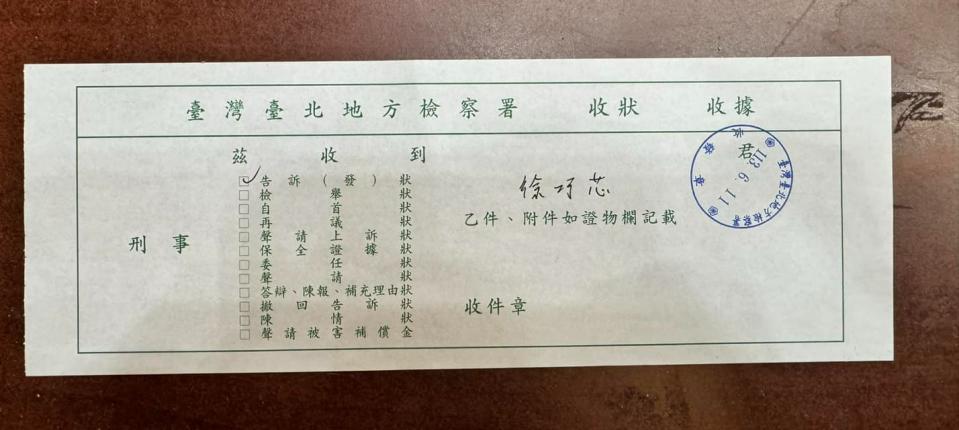 臺灣臺北地方檢察署 收狀 收據
茲收到
徐巧芯 君
乙件、附件如證物欄記載
刑事
□告訴(發)狀
□檢舉狀
□自首狀
□再議狀
□聲請上訴狀
□保全證據狀
□委任狀
□聲請狀
□答辯、陳報、補充理由狀
□撤回告訴狀
□陳情狀
□聲請被害補償金
收件章
臺灣臺北地方檢察署
113.6.11
收狀章